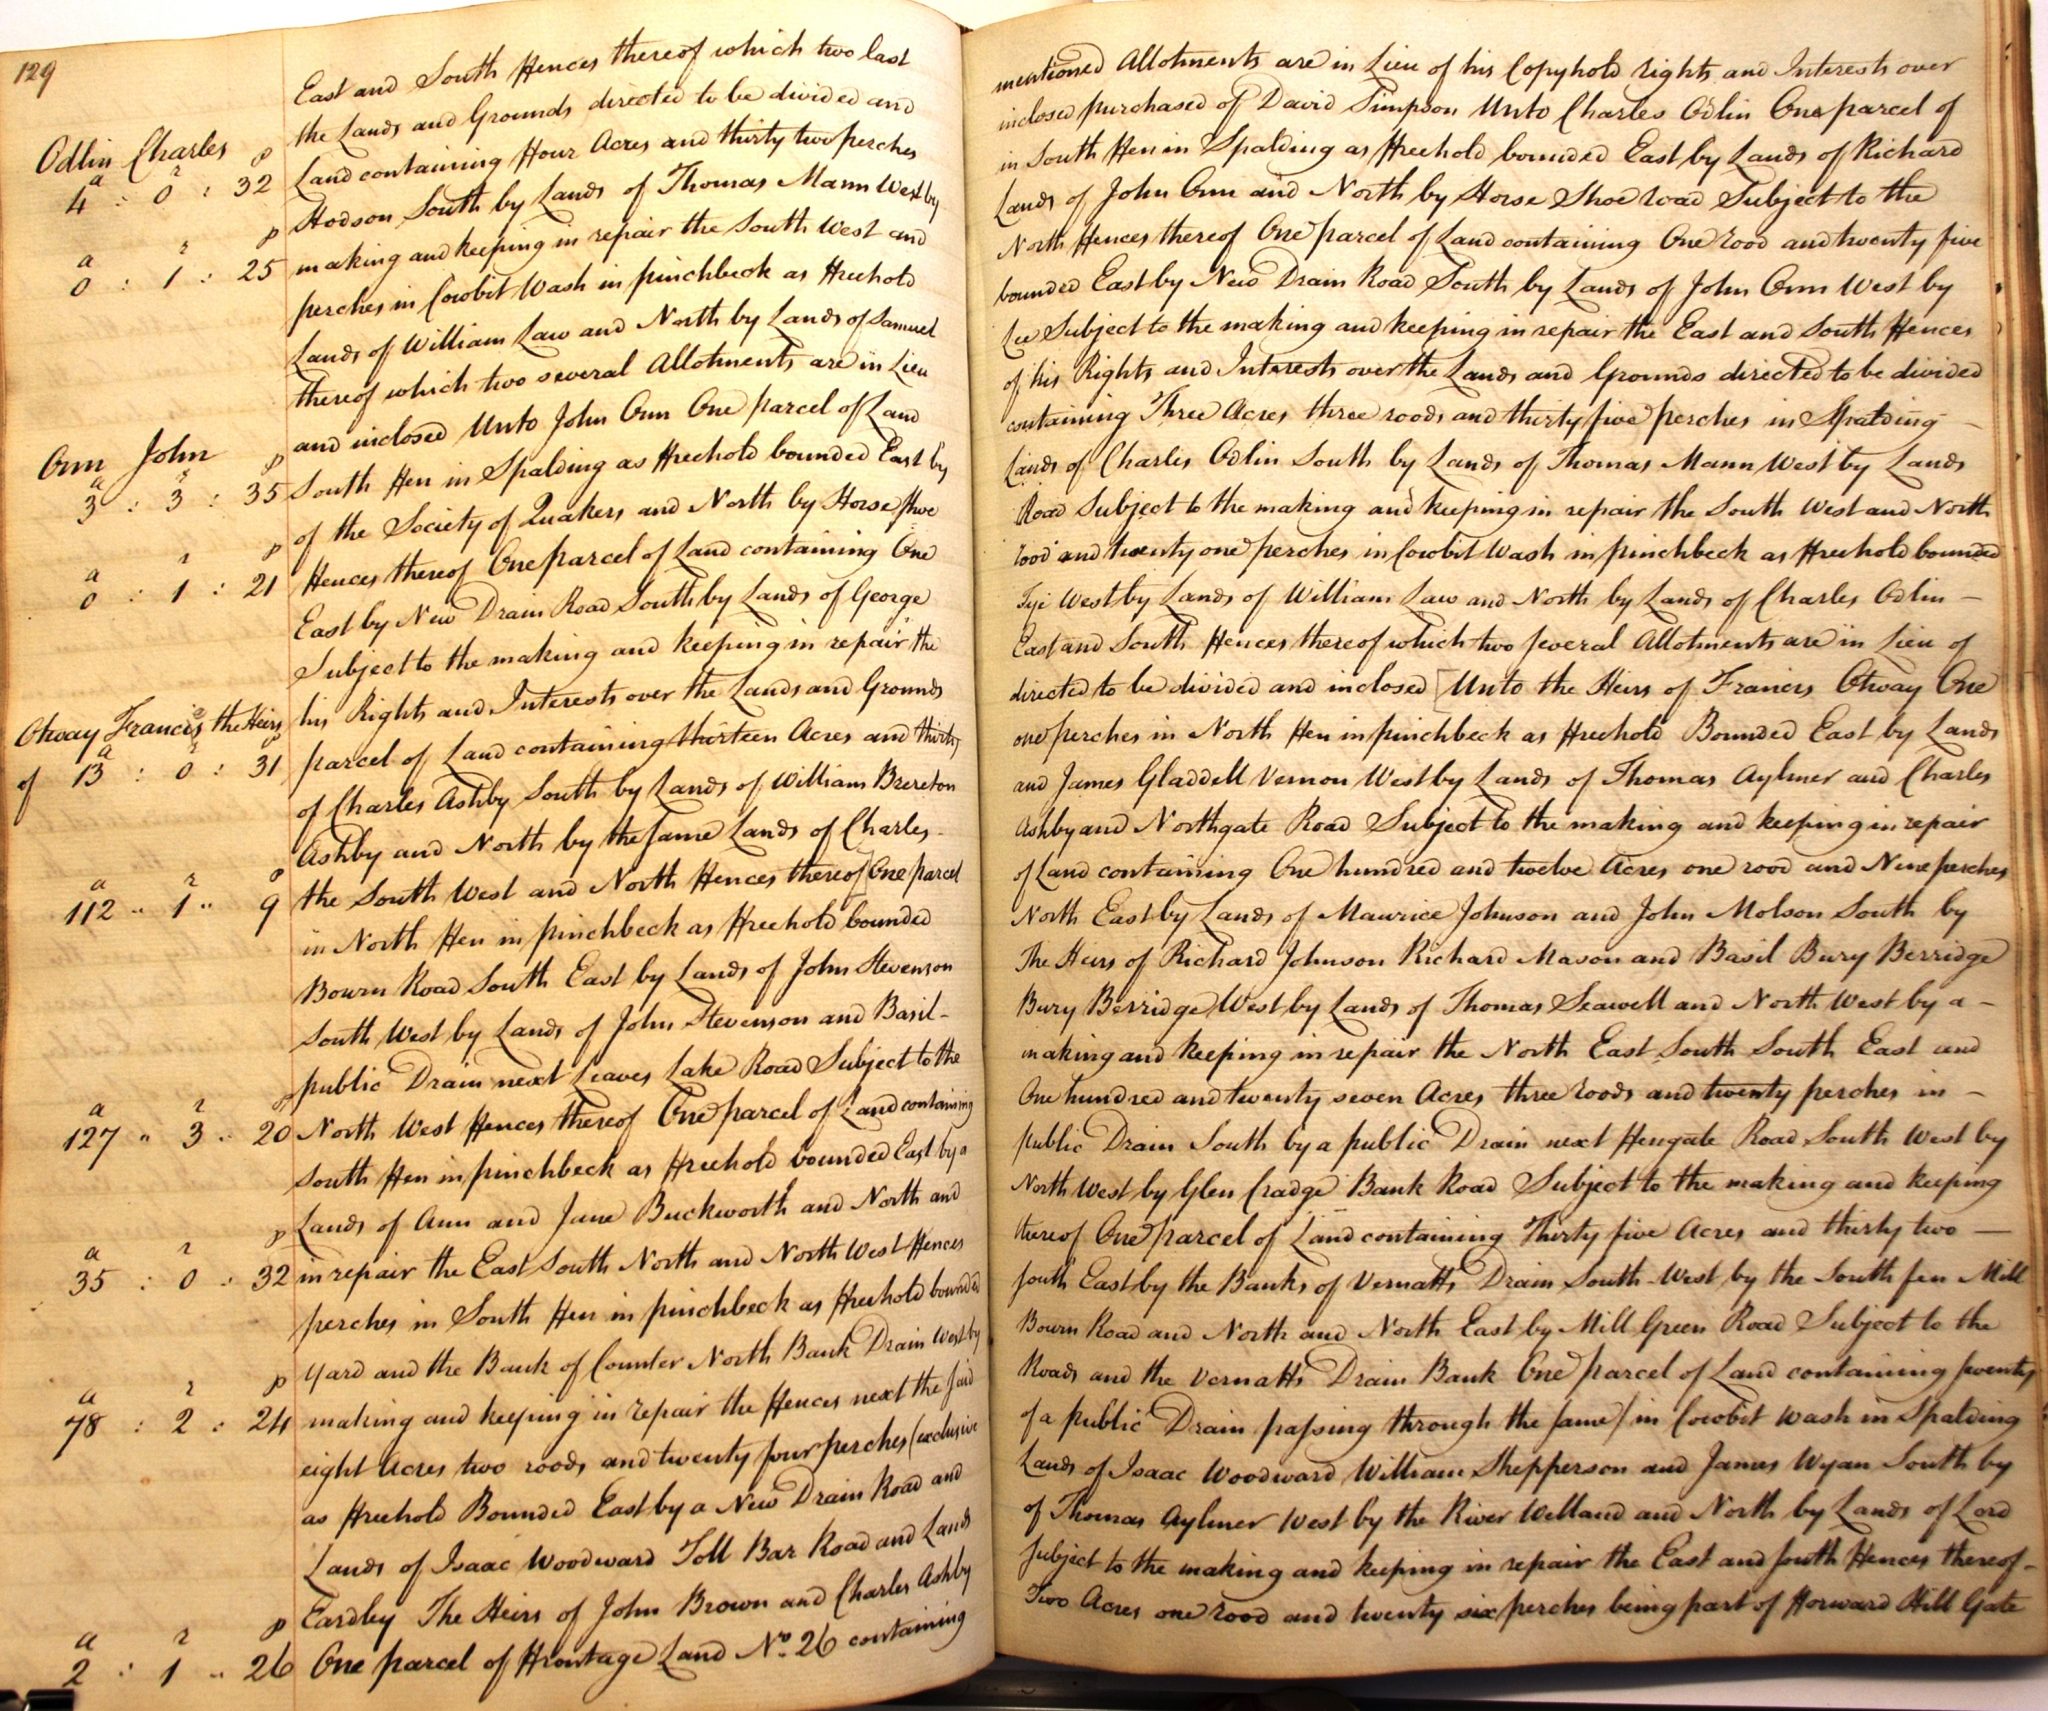 129
East and South Fences thereof which two last
mentioned Allotments are in Lieu of his Copyhold rights and Interests over
the Lands and Grounds directed to be divided and
inclosed purchased of David Simpson Unto Charles Odlin One parcel of
Odlin Charles
a r p
4 : 0 : 32
Land containing Four Acres and thirty two perches
in South Fen in Spalding as Freehold bounded East by Lands of Richard
Hodson South by Lands of Thomas Mann West by
Lands of John Orm and North by Horse Shoe road Subject to the
making and keeping in repair the South West and
North Fences thereof One parcel of Land containing One rood and twenty five
a r p
0 : 1 : 25
perches in Cowbit Wash in pinchbeck as Freehold
bounded East by New Drain Road South by Lands of John Orm West by
Lands of William Law and North by Lands of Samuel
Lee Subject to the making and keeping in repair the East and South Fences
thereof which two several Allotments are in Lieu
of his Rights and Interests over the Lands and Grounds directed to be divided
and inclosed Unto John Orm One parcel of Land
containing Three Acres three roods and thirty five perches in Spalding
Orm John
a r p
3 : 3 : 35
South Fen in Spalding as Freehold bounded East by
Lands of Charles Odlin South by Lands of Thomas Mann West by Lands
of the Society of Quakers and North by Horse shoe
Road Subject to the making and keeping in repair the South West and North
a r p
0 : 1 : 21
Fences thereof One parcel of Land containing One
rood and twenty one perches in Cowbit Wash in pinchbeck as Freehold bounded
East by New Drain Road South by Lands of George
Tyi West by Lands of William Law and North by Lands of Charles Odlin
Subject to the making and keeping in repair the
East and South Fences thereof which two several Allotments are in Lieu of
his Rights and Interests over the Lands and Grounds
directed to be divided and inclosed Unto the Heirs of Francis Otway One
Otway Francis the Heirs
a r p
of 13 : 0 : 31
parcel of Land containing thirteen Acres and thirty
one perches in North Fen in pinchbeck as Freehold Bounded East by Lands
of Charles Ashby South by Lands of William Brereton
and James Gladdell Vernon West by Lands of Thomas Aylmer and Charles
Ashby and North by the same Lands of Charles
Ashby and Northgate Road Subject to the making and keeping in repair
a r p
112 " 1 " 9
the South West and North Fences thereof One parcel
of Land containing One hundred and twelve Acres one rood and Nine perches
in North Fen in pinchbeck as Freehold bounded
North East by Lands of Maurice Johnson and John Molson South by
Bourn Road South East by Lands of John Stevenson
The Heirs of Richard Johnson Richard Mason and Basil Bury Berridge
South West by Lands of John Stevenson and Basil
Bury Berridge West by Lands of Thomas Seawell and North West by a
public Drain next Leaves Lake Road Subject to the
making and keeping in repair the North East South South East and
a r p
127 " 3 " 20
North West Fences thereof One parcel of Land containing
One hundred and twenty seven Acres three roods and twenty perches in
South Fen in pinchbeck as Freehold bounded East by a
public Drain South by a public Drain next Fengate Road South West by
Lands of Ann and Jane Buckworth and North and
North West by Glen Cradge Bank Road Subject to the making and keeping
a r p
35 : 0 : 32
in repair the East South North and North West Fences
thereof One parcel of Land containing Thirty five Acres and thirty two
perches in South Fen in pinchbeck as Freehold bounded
South East by the Banks of Vernatts Drain South West by the South fen Mill
Yard and the Bank of Counter North Bank Drain West by
Bourn Road and North and North East by Mill Green Road Subject to the
a r p
78 : 2 : 24
making and keeping in repair the Fences next the said
Roads and the Vernatts Drain Bank One parcel of Land containing seventy
eight Acres two roods and twenty four perches (exclusive
of a public Drain passing through the same) in Cowbit Wash in Spalding
as Freehold Bounded East by a New Drain Road and
Lands of Isaac Woodward William Shepperson and James Wyan South by
Lands of Isaac Woodward Toll Bar Road and Lands
of Thomas Aylmer West by the River Welland and North by Lands of Lord
Eardley The Heirs of John Brown and Charles Ashby
subject to the making and keeping in repair the East and South Fences thereof
a r p
2 : 1 " 26
One parcel of Frontage Land No. 26 containing
Two Acres one rood and twenty six perches being part of Forward Hill Gate